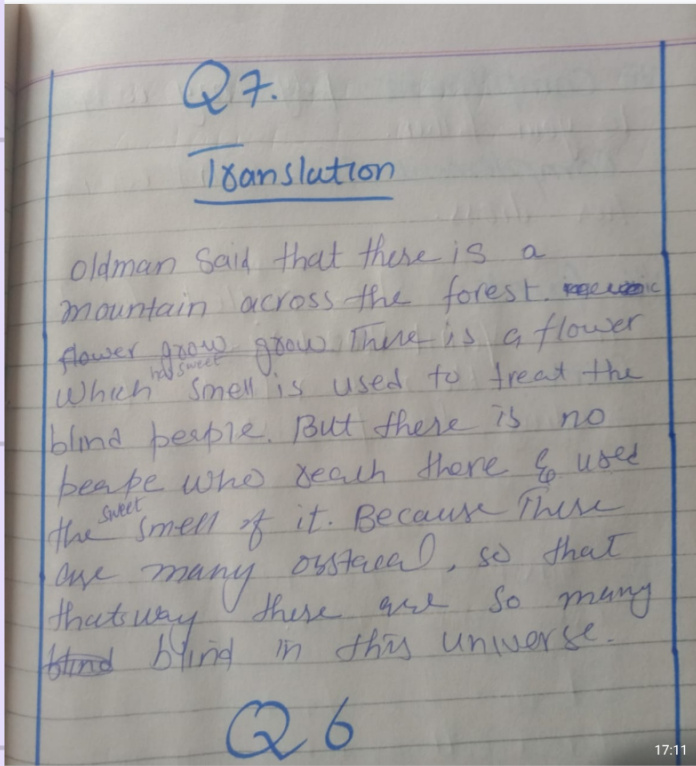 Q7.
Translation
Oldman said that there is a
mountain across the forest.
flower grow grow. There is a flower
which has sweet smell is used to treat the
blind peaple. But there is no
peape who reach there & used
the sweet smell of it. Because There
are many obstacal, so that
thatsway there are so many
blind blind in this universe.
Q6
17:11